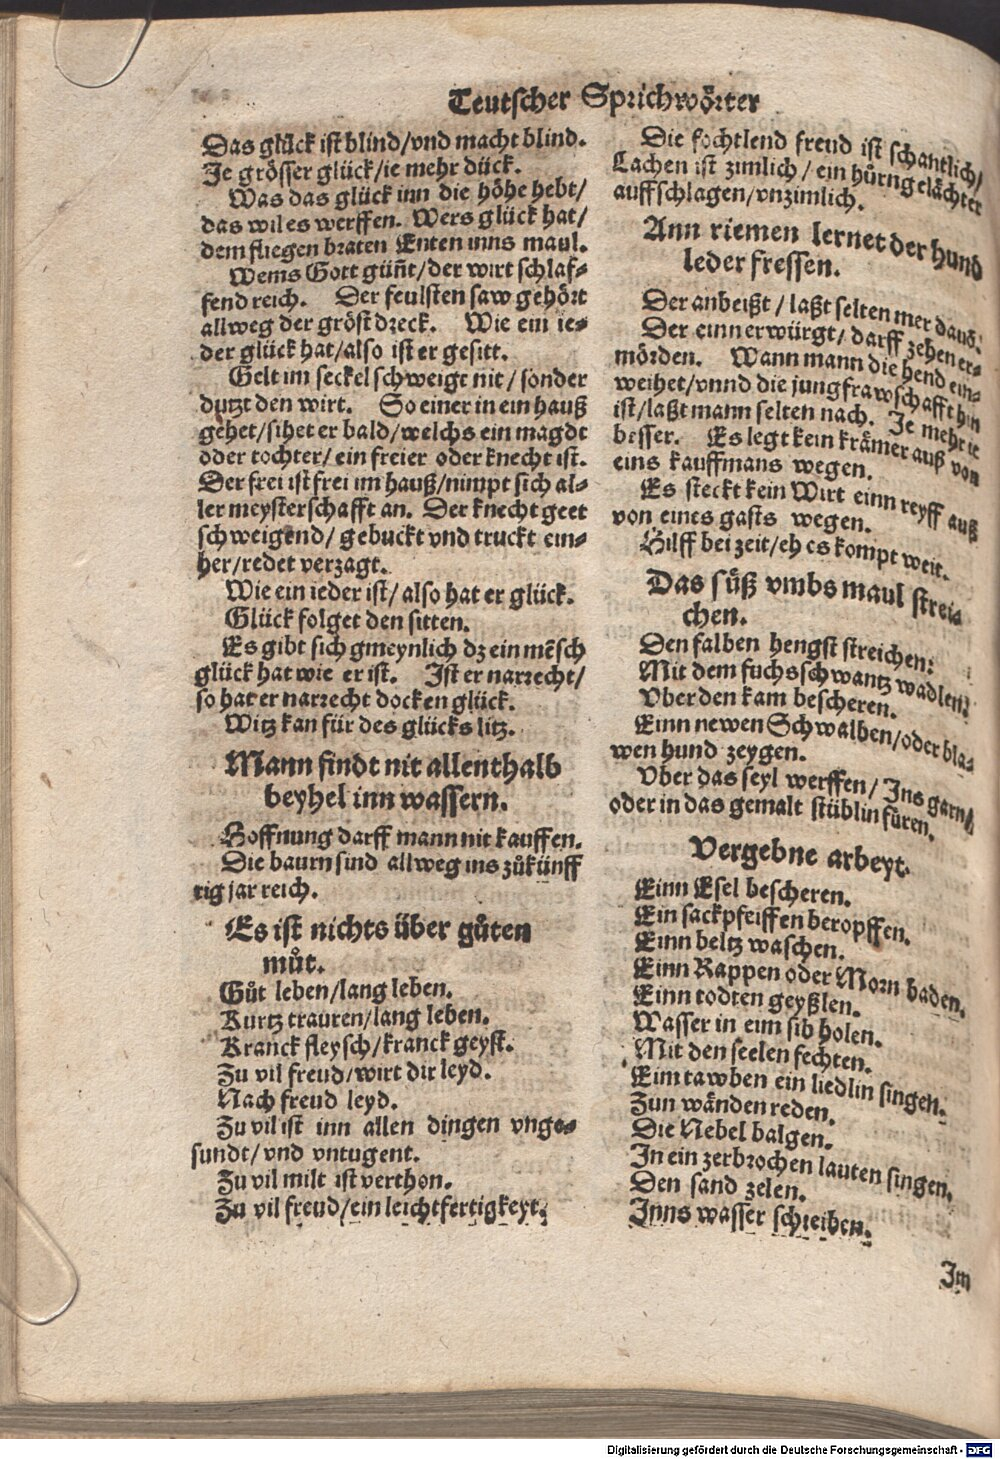 Teutscher Sprichwörter
Das glück ist blind/vnd macht blind.
Je grösser glück/ie mehr dück.
Was das glück inn die höhe hebt/
das wil es werffen. Wers glück hat/
dem fliegen braten Enten inns maul.
Wems Gott güñt/der wirt schlaf⸗
fend reich. Der feulsten saw gehört
allweg der gröst dreck. Wie ein ie⸗
der glück hat/also ist er gesitt.
Gelt im seckel schweigt nit/sonder
dutzt den wirt. So einer in ein hauß
gehet/sihet er bald/welchs ein magdt
oder tochter/ein freier oder knecht ist.
Der frei ist frei im hauß/nimpt sich al⸗
ler meysterschafft an. Der knecht geet
schweigend/gebuckt vnd truckt ein⸗
her/redet verzagt.
Wie ein ieder ist/also hat er glück.
Glück folget den sitten.
Es gibt sich gmeynlich dz ein mẽsch
glück hat wie er ist. Ist er narrecht/
so hat er narrecht docken glück.
Witz kan für des glücks litz.
Mann findt nit allenthalb
beyhel inn wassern.
Hoffnung darff mann nit kauffen.
Die baurn sind allweg ins zůkünff
tig jar reich.
Es ist nichts über gůten
můt.
Gůt leben/lang leben.
Kurtz trauren/lang leben.
Kranck fleysch/kranck geyst.
Zu vil freud/wirt dir leyd.
Nach freud leyd.
Zu vil ist inn allen dingen vnge⸗
sundt/vnd vntugent.
Zu vil milt ist verthon.
Zu vil freud/ein leichtfertigkeyt.
Die fochtlend freud ist schantlich/
Lachen ist zimlich/ein hůrngelächter
auffschlagen/vnzimlich.
Ann riemen lernet der hund
leder fressen.
Der anbeißt/laßt selten mer dauõ.
Der einn erwürgt/darff zehen er⸗
mörden. Wann mann die hend ein⸗
weihet/vnnd die jungfrawschafft hin
ist/laßt mann selten nach. Je mehr ie
besser. Es legt kein krämer auß von
eins kauffmans wegen.
Es steckt kein Wirt einn reyff auß
von eines gasts wegen.
Hilff bei zeit/eh es kompt weit.
Das süß vmbs maul strei⸗
chen.
Den falben hengst streichen:
Mit dem fuchsschwantz wadlen:
Vber den kam bescheren.
Einn newen Schwalben/oder bla⸗
wen hund zeygen.
Vber das seyl werffen/Ins garn/
oder in das gemalt stüblin füren.
Vergebne arbeyt.
Einn Esel bescheren.
Ein sackpfeiffen beropffen.
Einn beltz waschen.
Einn Rappen oder Morn baden.
Einn todten geyßlen.
Wasser in eim sib holen.
Mit den seelen fechten.
Eim tawben ein liedlin singen.
Zun wänden reden.
Die Nebel balgen.
In ein zerbrochen lauten singen.
Den sand zelen.
Inns wasser schreiben.
Im
Digitalisierung gefördert durch die Deutsche Forschungsgemeinschaft - DFG